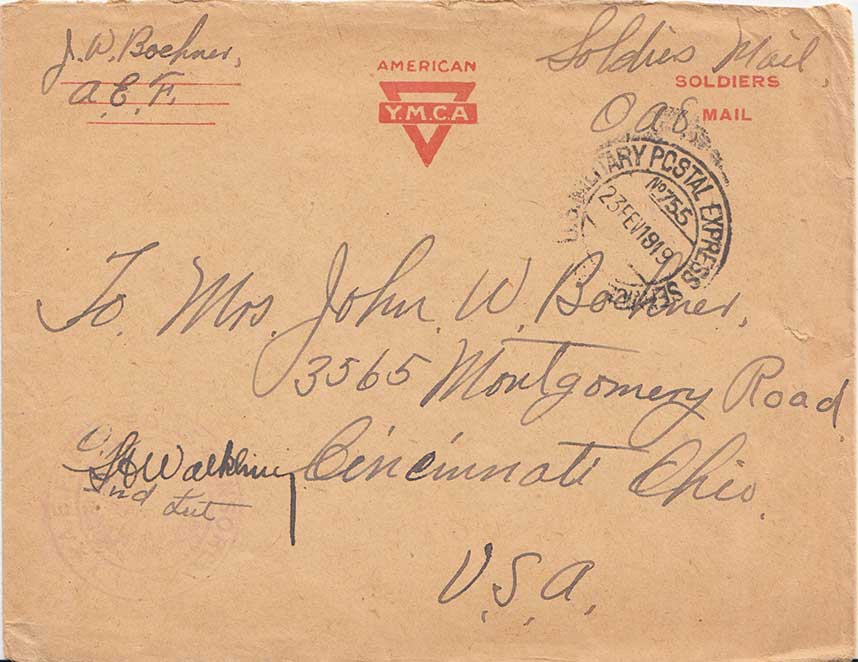 J. W. Boehner,
A. E. F.
AMERICAN
Y.M.C.A
Soldies Mail,
SOLDIERS
MAIL
O a S
U.S. MILITARY POSTAL EXPRESS SERVICE
No 755
23 FEV 1919
To. Mrs. John. W. Boehner,
3565 Montgomery Road
Cincinnati Ohio.
2nd Lut
U.S.A.